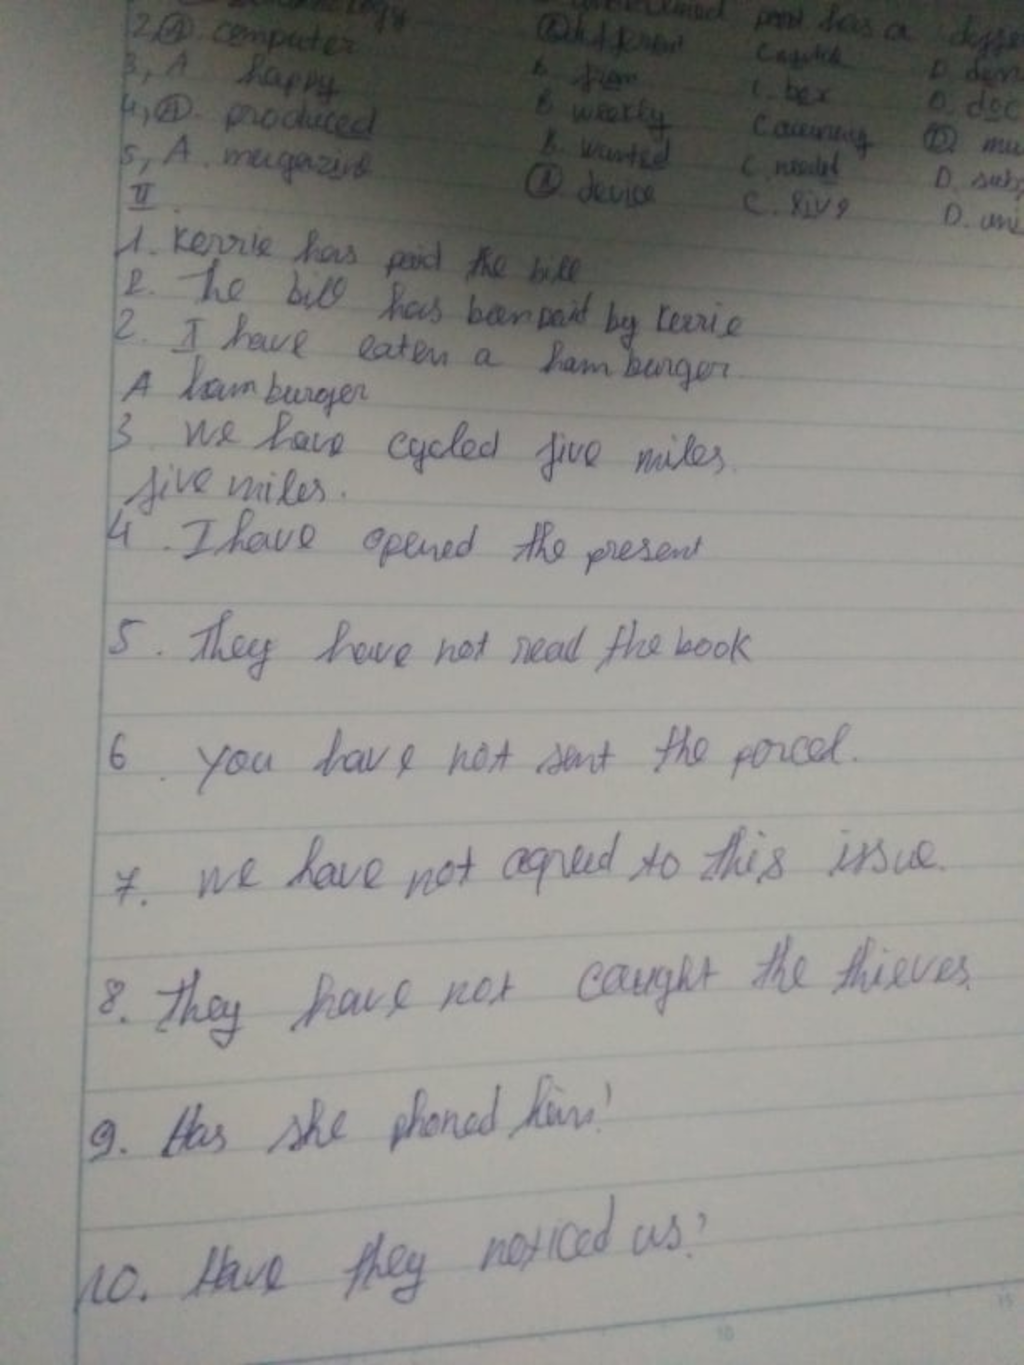 underlined part has a
2, A. computer B. different D.
3, A. happy B. from C. box D. doc
4, A. produced B. weekly D. mu
5, A. magazine B. wanted C. needed D. sub
II. B device C. five D. uni
1. Kerrie has paid the bill
2. The bill has been paid by Kerrie
2. I have eaten a ham burger
A ham burger
3 We have cycled five miles.
five miles.
4. I have opened the present
5. They have not read the book
6. You have not sent the parcel.
7. We have not agreed to this issue.
8. They have not caught the thieves.
9. Has she phoned him?
10. Have they noticed us?